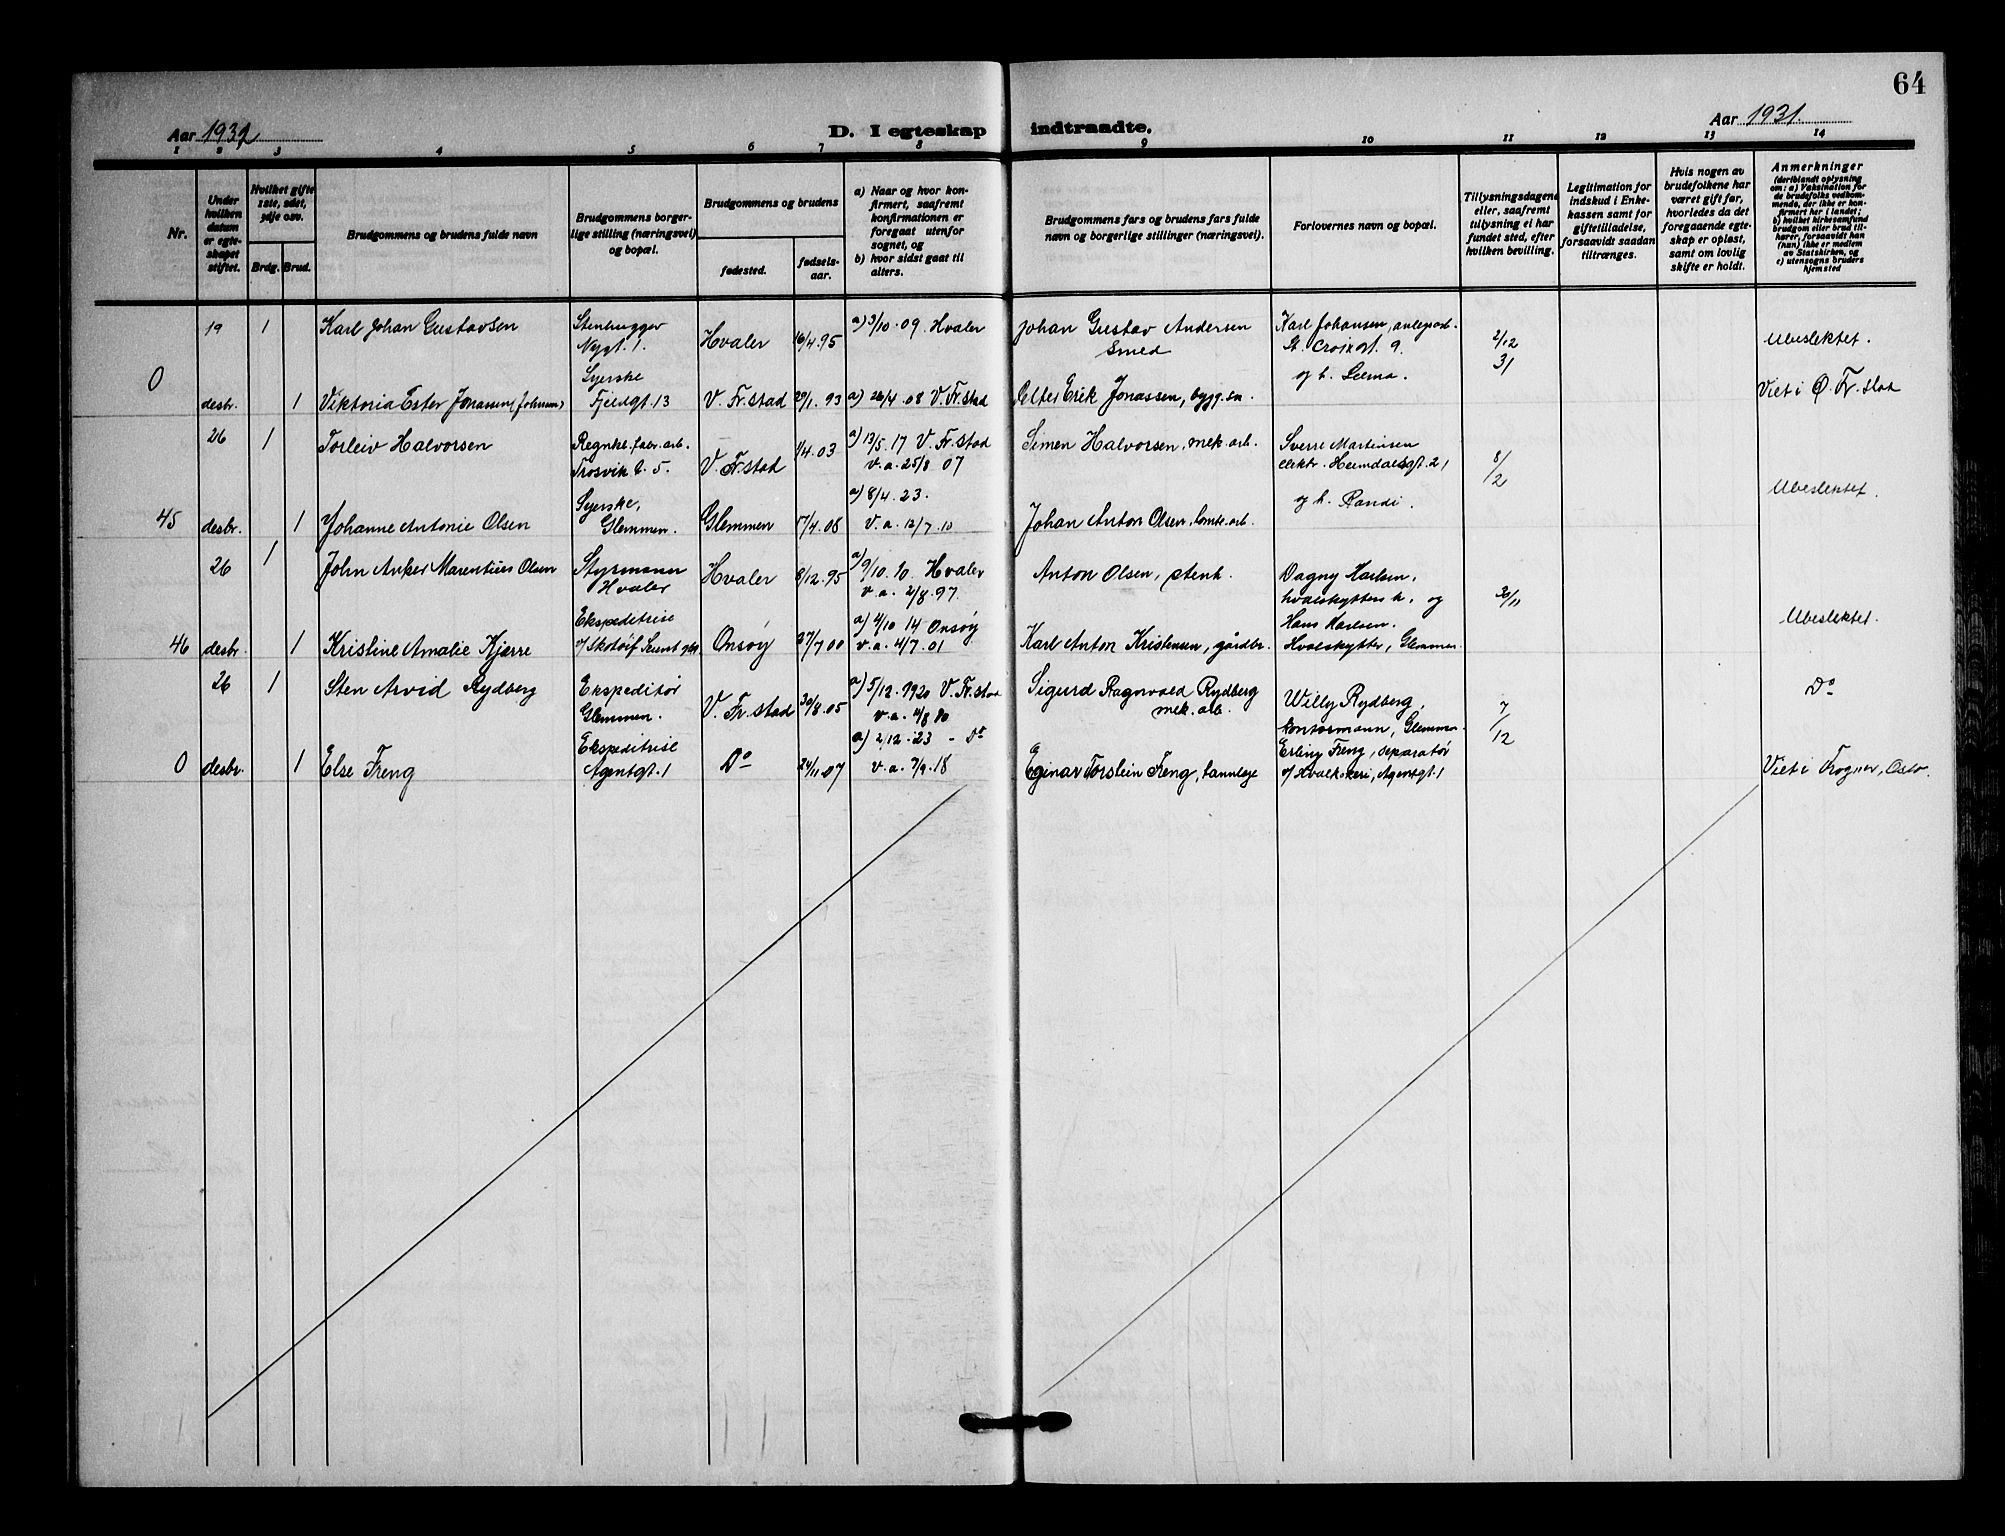 64
Aar 1931
D. I egteskap indtraadte.
Aar 1931.
1 2 3 4 5 6 7 8 9 10 11 12 13 14
Nr.
Under
hvilken
datum
er egte-
skapet
stiftet.
Hvilket gifte
1ste, 2det,
3dje osv.
Brdg. Brud.
Brudgommens og brudens fulde navn
Brudgommens borger-
lige stilling (næringsvei)
og bopæl.
Brudgommens og brudens
fødested.
fødsels-
aar.
a) Naar og hvor kon-
firmert, saafremt
konfirmationen er
foregaat utenfor
sognet, og
b) hvor sidst gaat til
alters.
Brudgommens fars og brudens fars fulde
navn og borgerlige stillinger (næringsvei).
Forlovernes navn og bopæl.
Tillysningsdagene
eller, saafremt
tillysning ei har
fundet sted, efter
hvilken bevilling.
Legitimation for
indskud i Enke-
kassen samt for
giftetilladelse,
forsaavidt saadan
tiltrænges.
Hvis nogen av
brudefolkene har
været gift før,
hvorledes da det
foregaaende egte-
skap er opløst,
samt om lovlig
skifte er holdt.
Anmerkninger
(deriblandt oplysning
om: a) Vaksination for
de brudefolks vedkom-
mende, der ikke er kon-
firmert her i landet;
b) hvilket kirkesamfund
brudgom eller brud til-
hører, forsaavidt han
(hun) ikke er medlem
av Statskirken, og
c) utensogns bruders
hjemsted
19 1 Karl Johan Gustavsen
Stenhugger
Nygt. 1.
Hvaler 16/4.95 a) 3/10.09. Hvaler
Johan Gustav Andersen
Smed
Karl Johansen, anlegsarb.
St. Croixgt. 9.
og h. Selma.
2/12
31
Ubeslektet.
0 desbr. 1 Viktoria Ester Jonassen (Johnsen)
Syerske
Fjeldgt. 13
V. Fr.stad 29/1. 93 a) 26/4.08 V. Fr.stad
Erik Jonassen, bygg.sn.
Viet i Ø. Fr.stad
26 1 Torleiv Halvorsen
Regnkl.fabr.arb.
Trosvik b. 5.
V. Fr.stad 1/4.03 a) 13/5.17 V. Fr.stad
v.a. 25/8 07
Simen Halvorsen, mek.arb.
Sverre Martinsen
elektr. Heimdalsgt. 21
og h. Randi.
8/
/2
Ubeslektet.
45 desbr. 1 Johanne Antonie Olsen
Syerske,
Glemmen.
Glemmen 17/4.08 a) 8/4.23.
v.a. 12/7.10
Johan Anton Olsen, tomtearb.
26 1 John Anker Marentius Olsen
Styrmann
Hvaler
Hvaler 8/12.95 a) 9/10.10. Hvaler
v.a. 2/8.97.
Anton Olsen, stenh.
Dagny Karlsen,
hvalskytters h. og
Hans Karlsen.
Hvalskytter, Glemmen.
30/11
Ubeslektet.
46 desbr. 1 Kristine Amalie Kjærre
Ekspeditrise
Onsøy 27/7 00 a) 4/10 14 Onsøy
v.a. 4/7.01
Karl Anton Kristensen, gårdbr.
26 1 Sten Arvid Rydberg
Ekspeditør
Glemmen.
V. Fr.stad 30/8.05 a) 5/12.1920 V. Fr.stad
v.a. 4/8 10
Sigurd Ragnvald Rydberg
mek.arb.
Willy Rydberg,
kontormann, Glemmen.
7/
/12
Do
0 desbr. 1 Else Freng
Ekspeditrise
Agentgt. 1
Do 24/11.07 a) 2/12.23 - Do
v.a. 7/9.18
Einar Torstein Freng, tannlege
Erling Freng, separatør
Agentgt. 1
Viet i Frogner, Oslo.